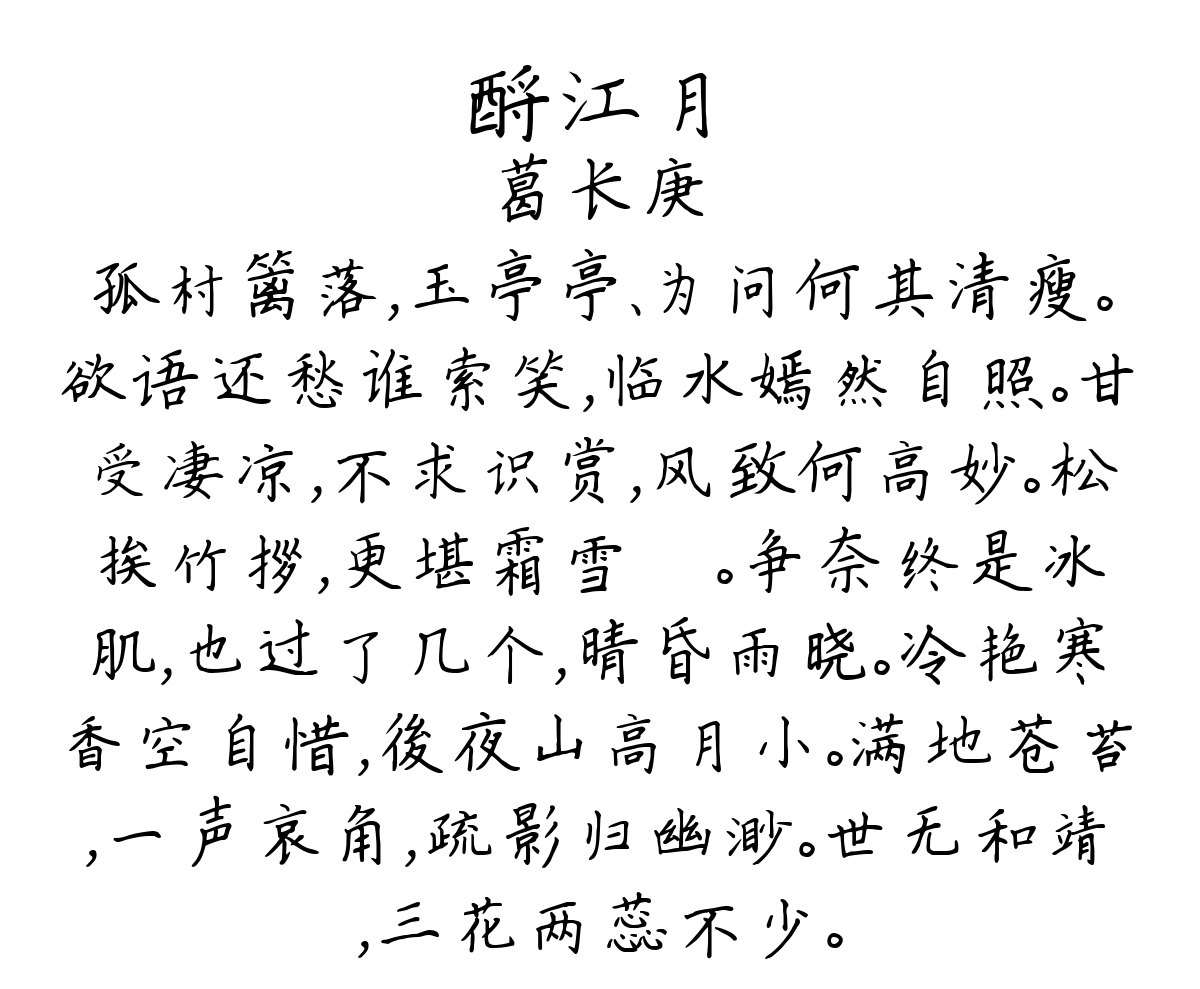 酹江月
葛长庚
孤村篱落,玉亭亭、为问何其清瘦。
欲语还愁谁索笑,临水嫣然自照。甘
受凄凉,不求识赏,风致何高妙。松
挨竹拶,更堪霜雪 。争奈终是冰
肌,也过了几个,晴昏雨晓。冷艳寒
香空自惜,後夜山高月小。满地苍苔
,一声哀角,疏影归幽渺。世无和靖
,三花两蕊不少。